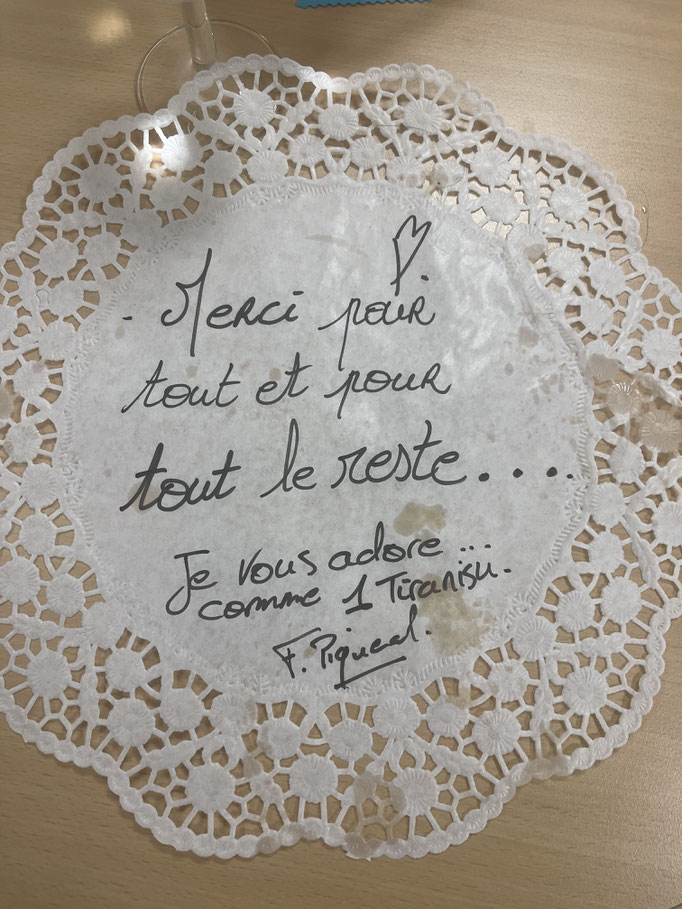 - Merci pour
tout et pour
tout le reste....
Je vous adore...
comme 1 Tiramisu.
F. Piquemal.